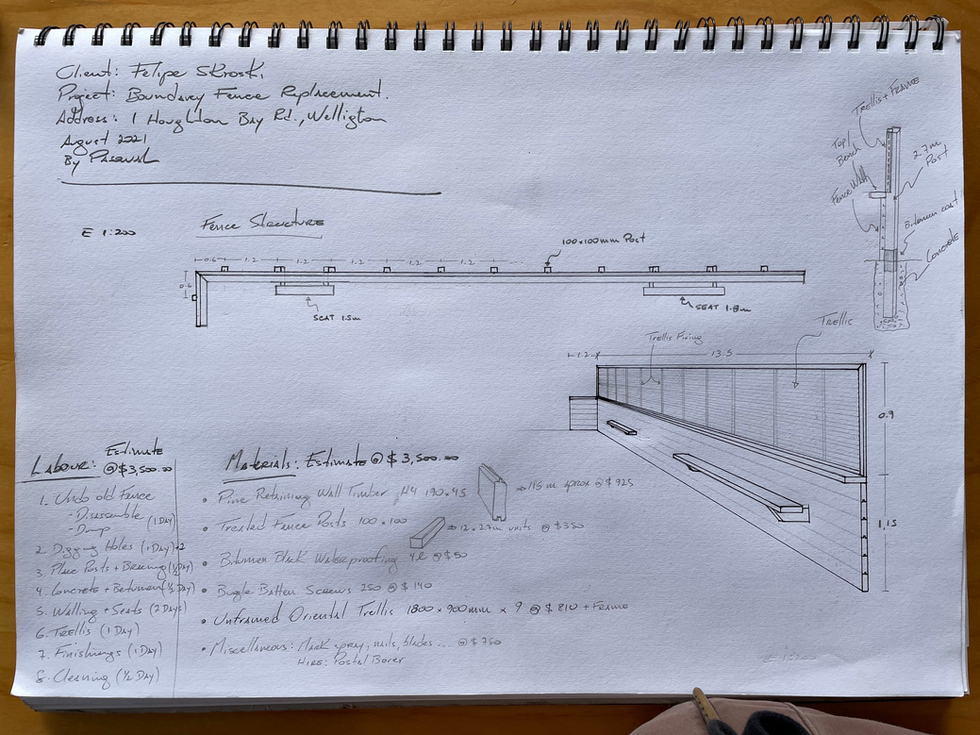 Client: Felipe Skroski
Project: Boundary Fence Replacement.
Address: 1 Houghton Bay Rd., Welligton
August 2021
By Pascual
E 1:200
Fence Structure
-0.6-
1.2
1.2
1.2
1.2
1.2
0.6
100x100mm Post
SEAT 1.5m
SEAT 1.8m
Trellis + FRAME
Top/
Bench
2.7m
Post
Fence Wall
Bitumen coat
Concrete
Trellis Fixing
Trellis
1.2
13.5
0.9
1,15
Labour: Estimate
@ $3,500.00
1. Undo old Fence
- Dissasemble
- Dump (1 Day)
2. Digging Holes (1 Day) x2
3. Place Posts + Bracing (½ Day)
4. Concrete + Betumen (½ Day)
5. Walling + Seats (2 Days)
6. Trellis (1 Day)
7. Finishings (1 Day)
8. Cleaning (½ Day)
Materials: Estimate @ $3,500.00
• Pine Retaining Wall Timber H4 190x45 ⇒ 115 m aprox @ $925
• Treated Fence Posts 100x100 ⇒ 12 x 2.7m units @ $350
• Bitumen Black Waterproofing 4L @ $50
• Bugle Batten Screws 250 @ $140
• Unframed Oriental Trellis 1800 x 900mm x 9 @ $810 + Frame
• Miscellaneous: Mark spray, nails, blades ... @ $750
HIRE: Postal Borer